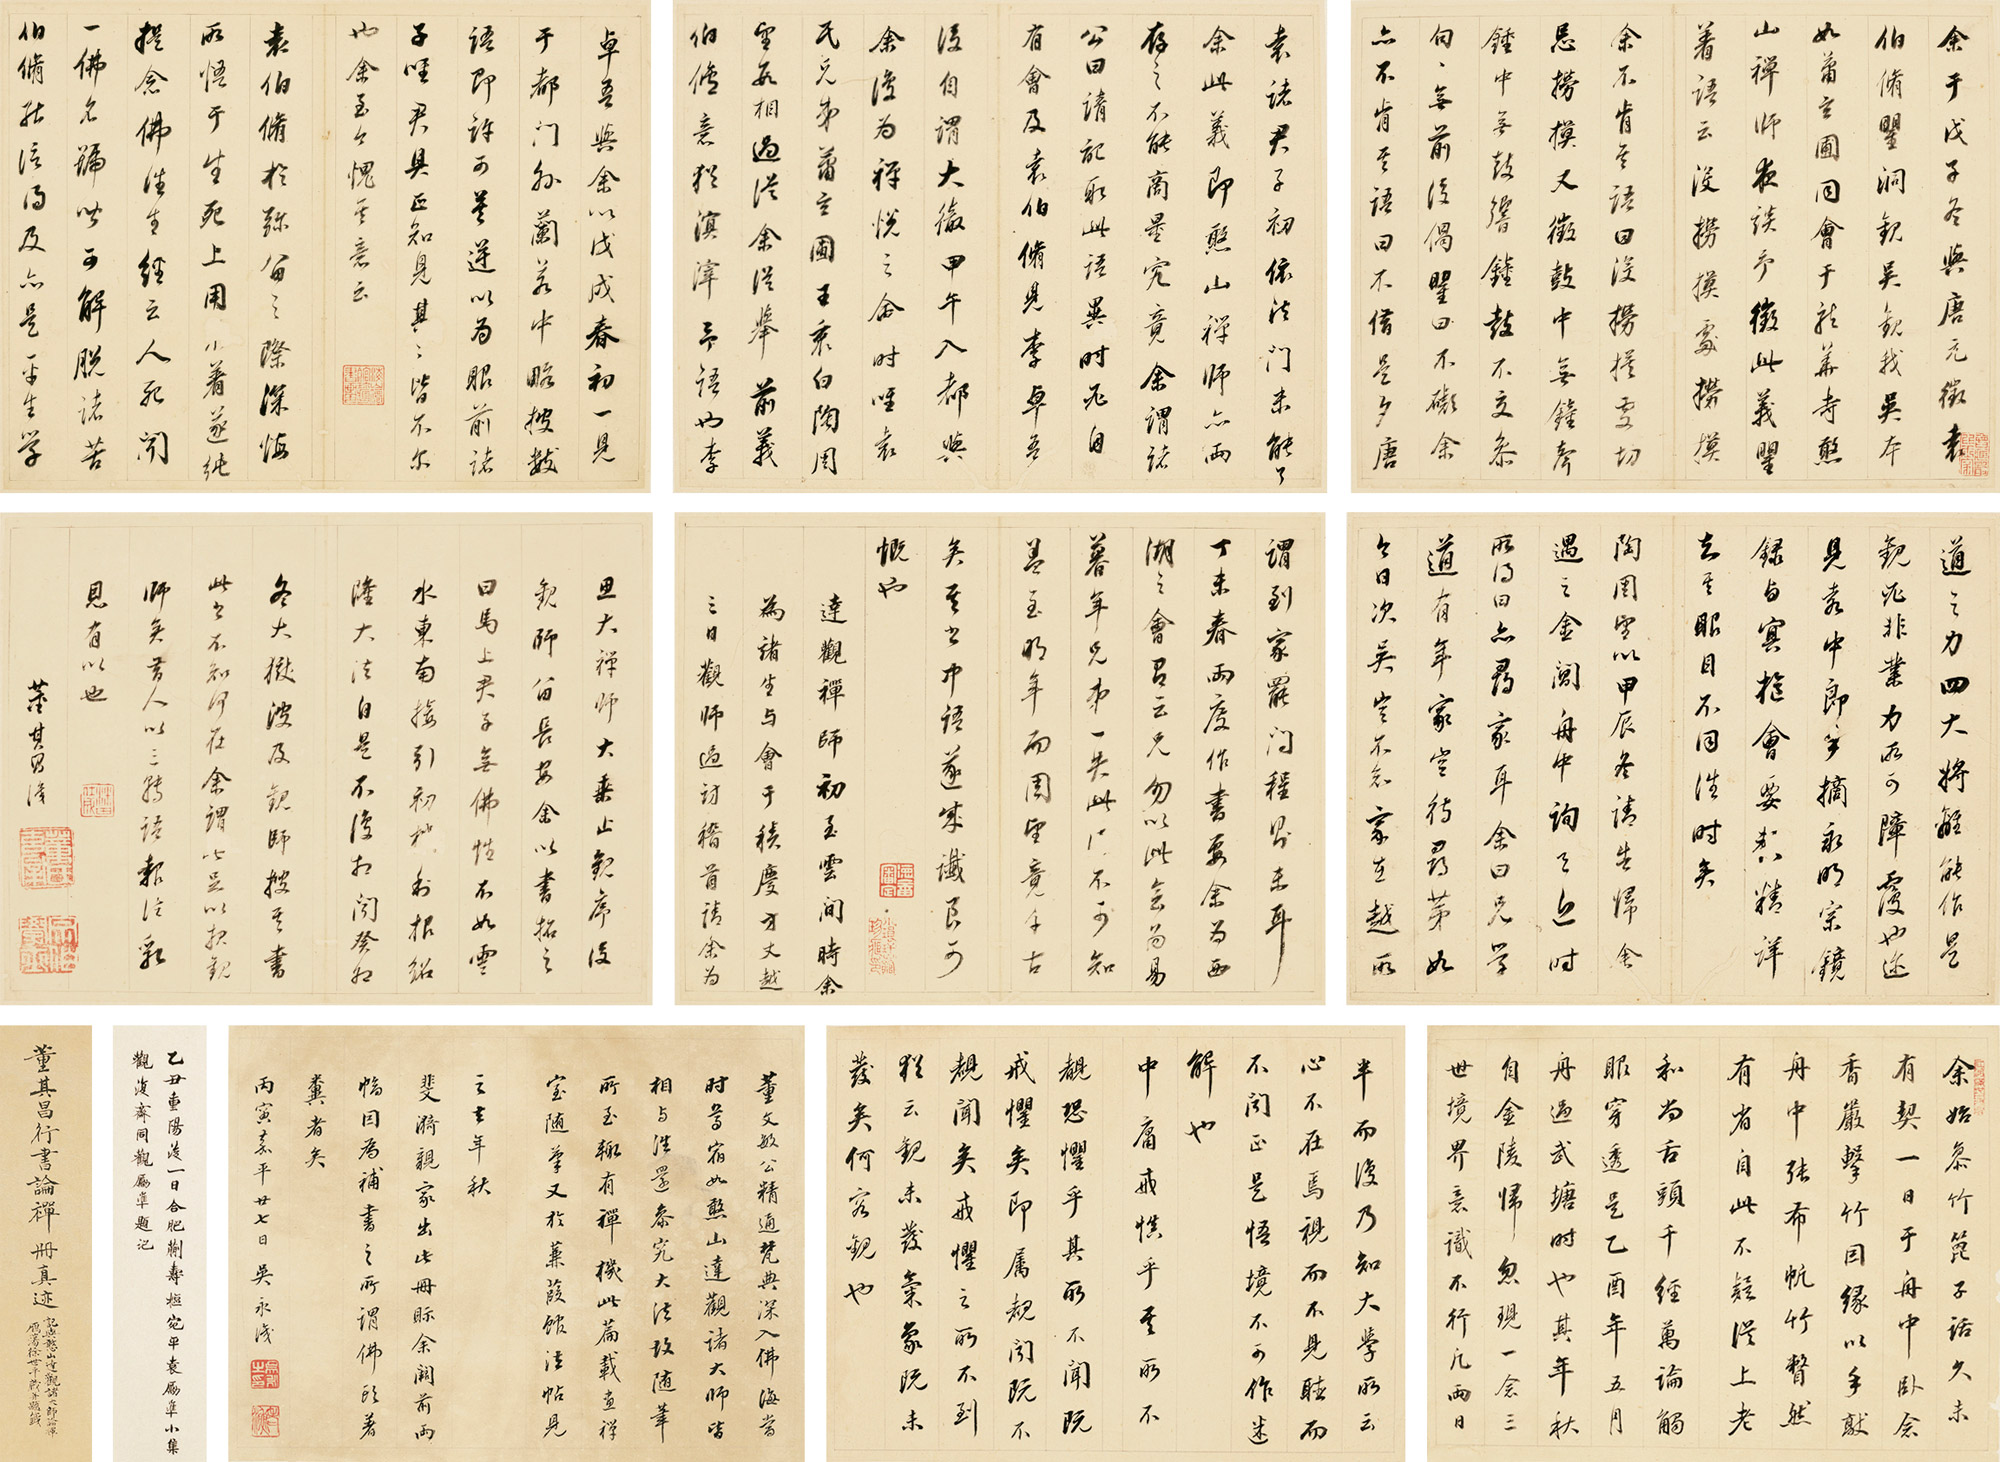 余于戊子冬與唐元徵袁
伯脩瞿洞觀吳觀我吳本
如蕭玄圃同會于龍華寺憨
山禪師夜談予徵此義瞿
着語云没撈摸處撈摸
余不肯其語曰没撈摸處切
忌撈摸又徵鼓中無鐘聲
鐘中無鼓響鐘鼓不交參
句〻無前後偈瞿曰不礙余
亦不肯其語曰不借是夕唐
袁諸君子初依法門未能了
余此義即憨山禪師亦兩
存之不能商量究竟余謂諸
公曰請記取此語異時必自
有會及袁伯脩見李卓吾
後自謂大徹甲午入都與
余復為禪悅之會時唯袁
氏兄弟蕭玄圃王衷白陶周
望數相過從余從舉前義
伯脩意猶溟涬予語也李
卓吾與余以戊戌春初一見
于都門外蘭若中略披數
語即許可莫逆以為眼前諸
子唯君具正知見其〻皆不尔
也余至今愧其意云
袁伯脩於彌留之際深悔
所悟于生死上用不著遂純
提念佛往生經云人死聞
一佛名號皆可解脫諸苦
伯脩能信得及亦是平生學
道之力四大將離能作是
觀必非業力所可障覆也邇
見袁中郎手摘永明宗鏡
録与冥樞會要較精詳
知其眼目不同往時矣
陶周望以甲辰冬請告歸余
遇之金閶舟中詢之近時
所得曰亦尋家耳余曰兄學
道有年家豈待尋第如
今日次吳豈不知家在越所
謂到家罷問程則未耳
丁未春兩度作書要余為西
湖之會有云兄勿以此會為易
暮年兄弟一失此便不可知
蓋至明年而周望竟千古
矣其書中語遂成讖良可
慨也
達觀禪師初至雲間時余
為諸生与會于積慶方丈越
三日觀師過訪稽首請余為
思大禪師大乘止觀序復
觀師留長安余以書招之
曰馬上君子無佛性不如雲
水東南接引初地利根紹
隆大法自是不復相聞癸卯
冬大獄波及觀師搜其書
此書不知何在余謂此足以報觀
師矣昔人以三轉語報法乳
恩有以也
董其昌識
余始慕竹篦子話久未
有契一日于舟中卧念
香嚴擊竹因緣以手敲
舟中張布帆竹瞥然
有省自此不疑從上老
和尚舌頭千經萬論觸
眼穿透是乙酉年五月
舟過武塘時也其年秋
自金陵歸忽現一念三
世境界意識不行凡兩日
半而復乃知大學所云
心不在焉視而不見聽而
不聞正是悟境不可作迷
解也
中庸戒慎乎其所不
覩恐懼乎其所不聞既
戒懼矣即属覩聞既不
覩聞矣戒懼之所不到
猶云觀未發氣象既未
發矣何容觀也
董文敏公精通梵典深入佛海當
时耆宿如憨山達觀諸大师皆
相与往還參究大法故随筆
所至輒有禪機此篇載畫禪
室随筆又於蒹葭館法帖見
之去年秋
斐漪親家出此册眎余闕前兩
幅因為補書之所謂佛頭著
糞者矣
丙寅嘉平廿七日吳永識
乙丑重陽後一日合肥蒯壽樞宛平袁勵準小集
觀復齋同觀勵準題記
董其昌行書論禪册真迹
記與憨山達觀諸大師論禪